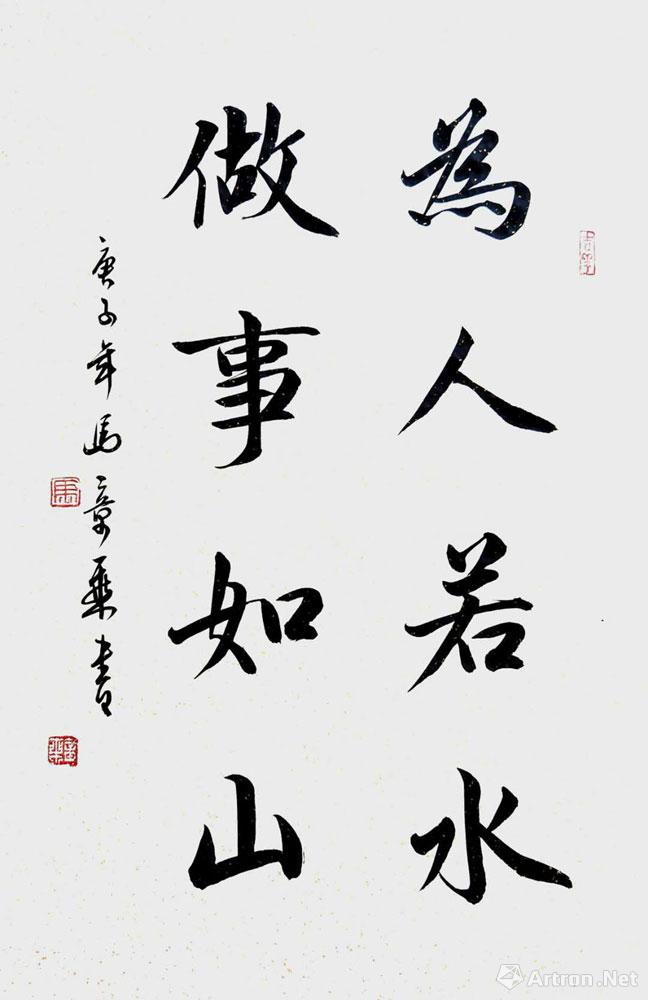 為人若水
做事如山
庚子年馬章乘書
Artron.Net